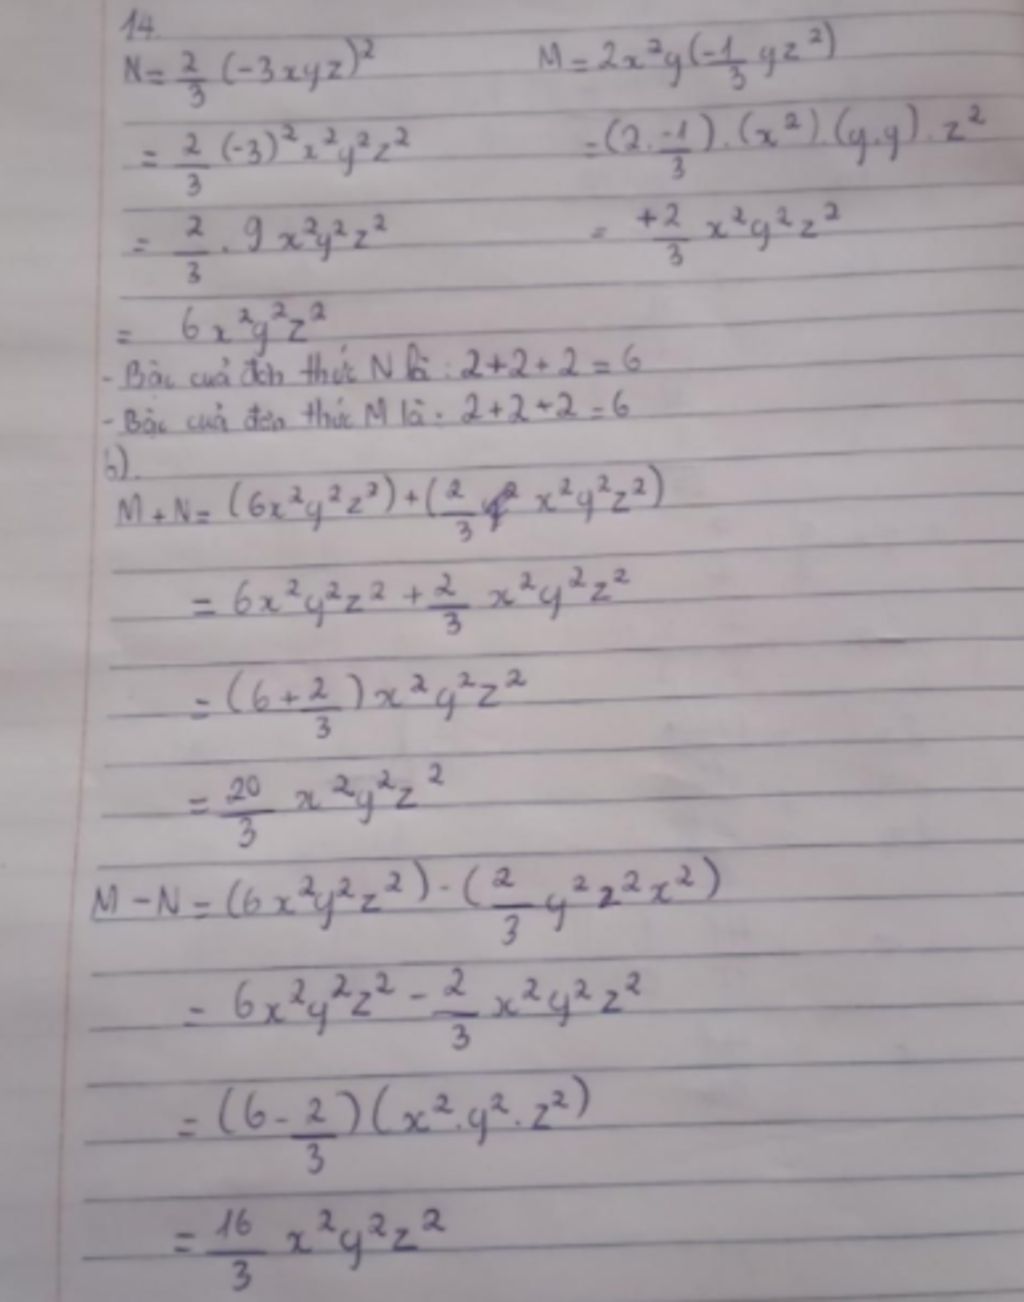 14.
N = 2/3 (-3xyz)²
= 2/3 (-3)² x²y²z²
= 2/3 . 9 x²y²z²
= 6x²y²z²
M = 2x²y(-1/3 yz²)
= (2. -1/3) . (x²) . (y.y) . z²
= +2/3 x²y²z²
- Bậc cuả đơn thức N là : 2+2+2 = 6
- Bậc cuả đơn thức M là : 2+2+2 = 6
b).
M + N = (6x²y²z²) + (2/3 x²y²z²)
= 6x²y²z² + 2/3 x²y²z²
= (6 + 2/3) x²y²z²
= 20/3 x²y²z²
M - N = (6x²y²z²) - (2/3 y²z²x²)
= 6x²y²z² - 2/3 x²y²z²
= (6 - 2/3) (x².y².z²)
= 16/3 x²y²z²